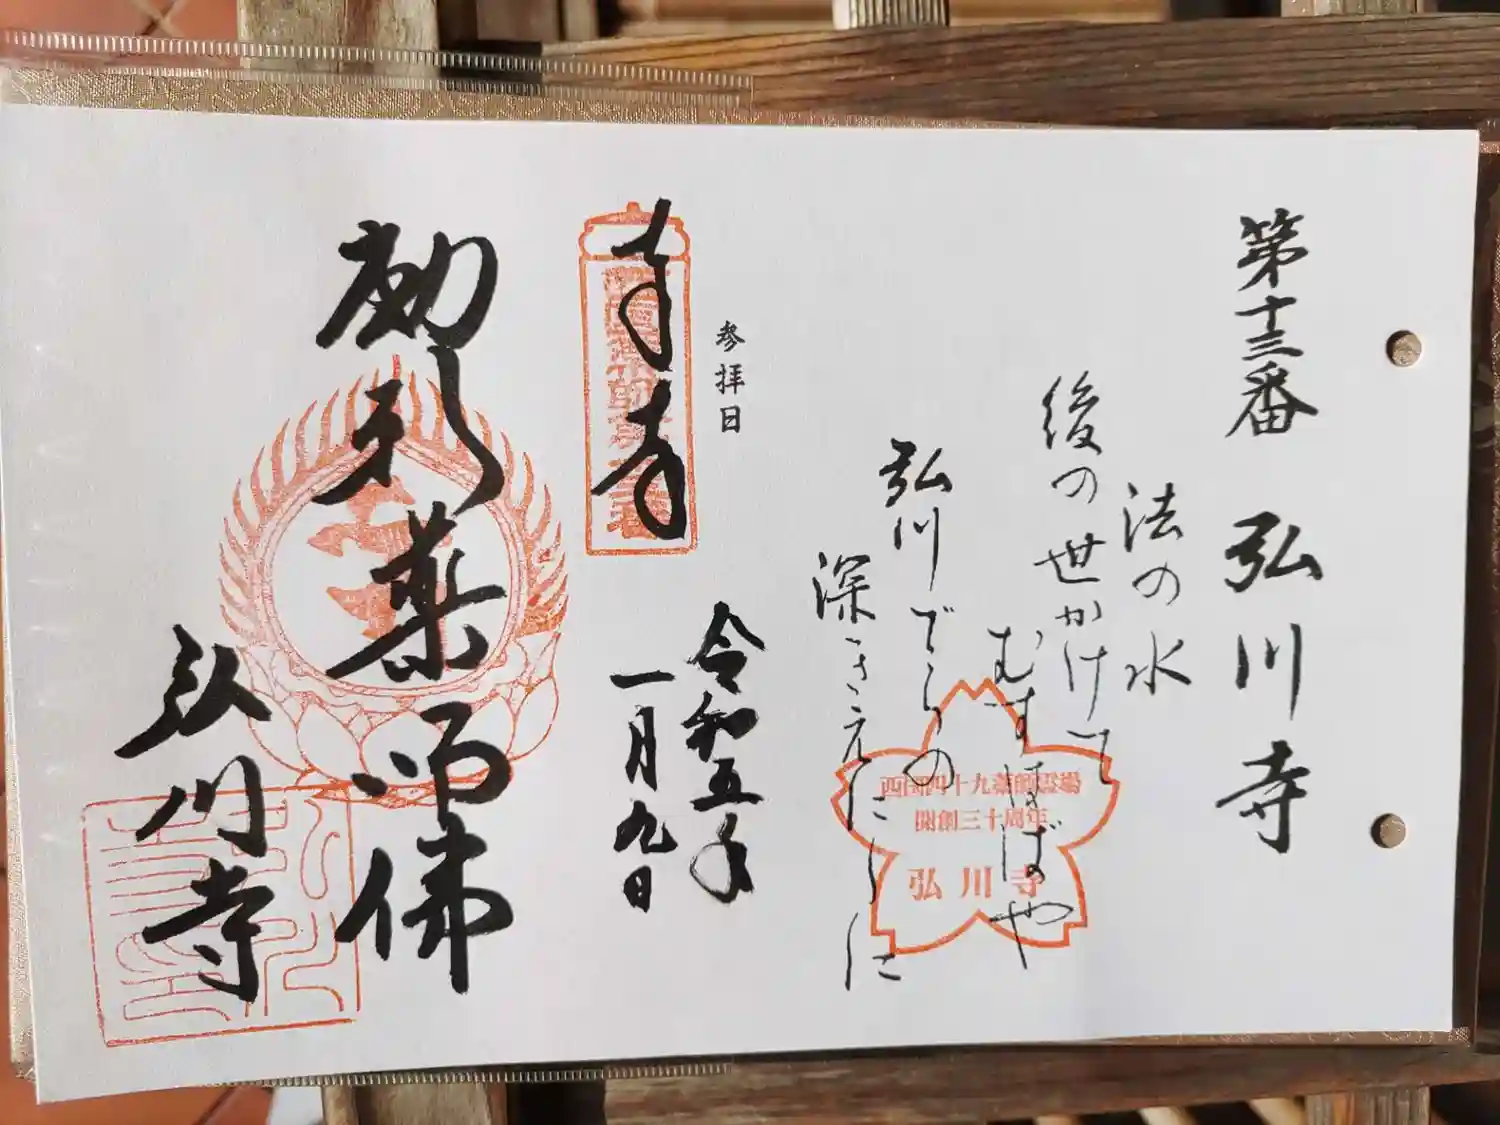 第十三番 弘川寺
法の水
後の世かけて
むすはばや
弘川でらの
深きえにしに
西国四十九薬師霊場
開創三十周年
弘川寺
参拝日
令和五年
一月九日
西国薬師第十三番
薬師佛
弘川寺